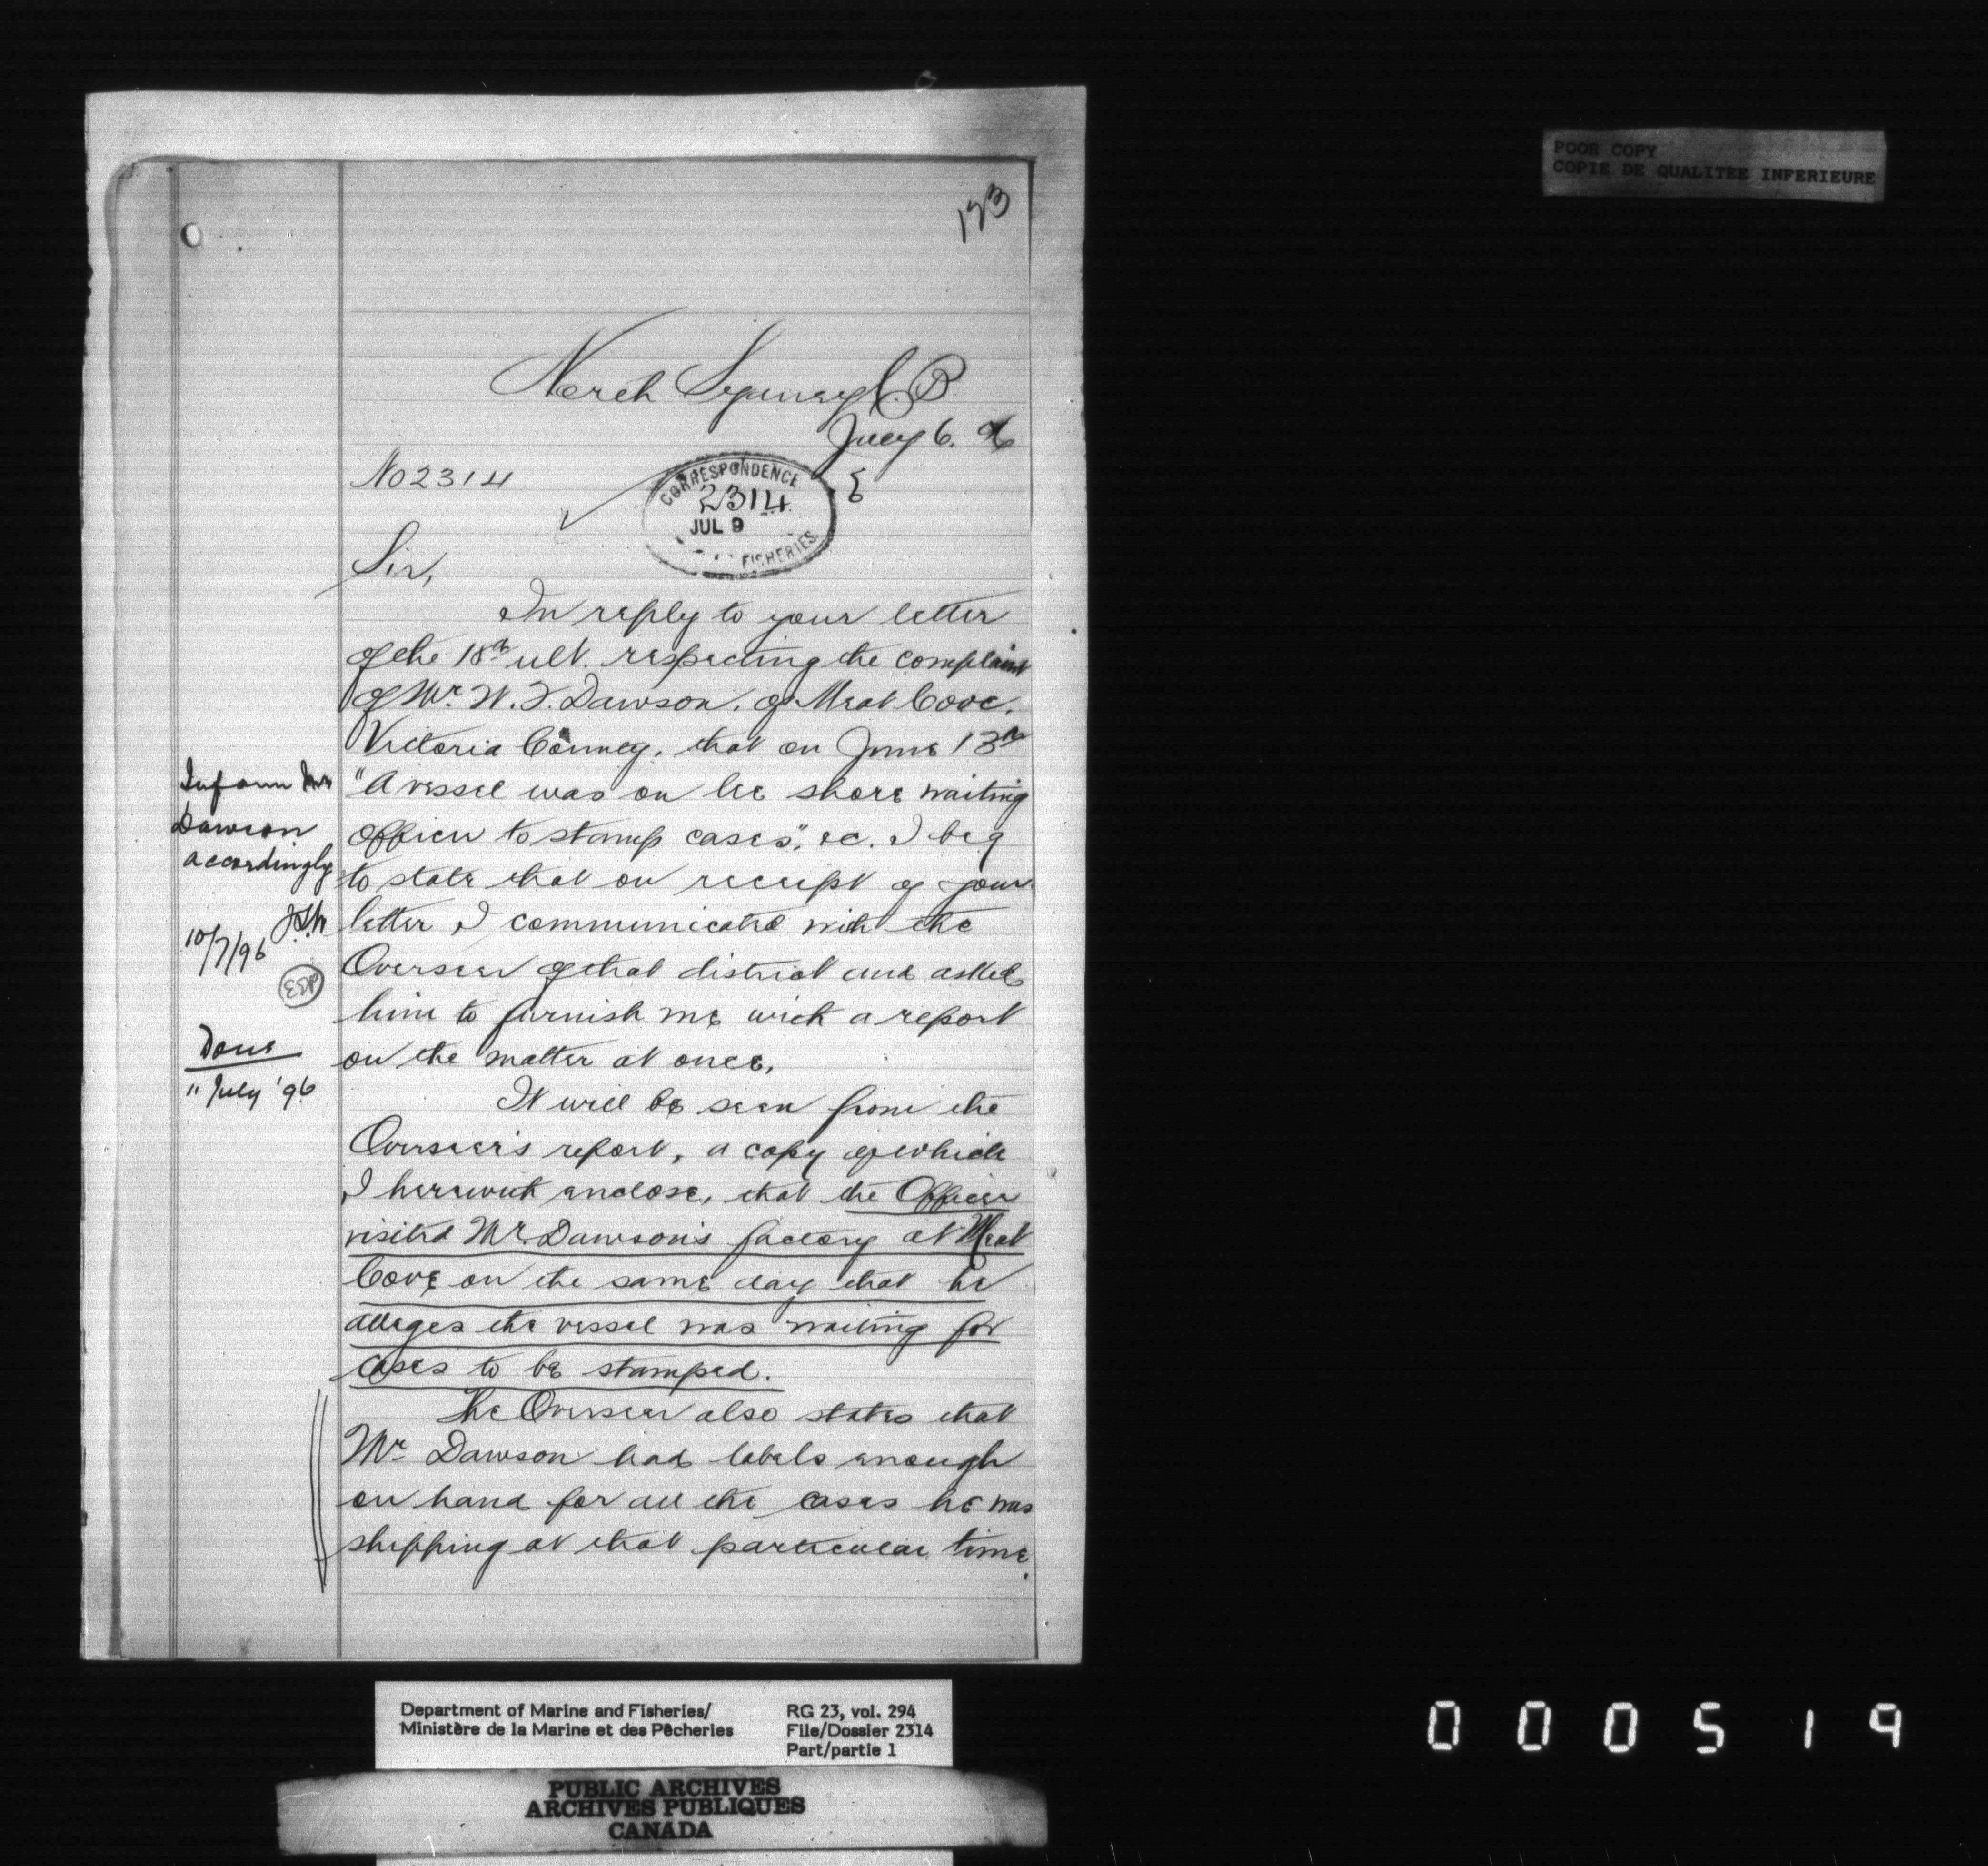 POOR COPY
COPIE DE QUALITEE INFERIEURE
123
North Sydney C.B
July 6. 96
No 2314
CORRESPONDENCE
2314
JUL 9
FISHERIES
Sir,
In reply to your letter
of the 18th ult. respecting the complaint
of Mr. W. F. Dawson, of Meat Cove,
Victoria County, that on June 13th
"A vessel was on lee shore waiting
officer to stamp cases", &c. I beg
to state that on receipt of your
letter I communicated with the
Overseer of that district and asked
him to furnish me with a report
on the matter at once.
It will be seen from the
Overseer's report, a copy of which
I herewith enclose, that the Officer
visited Mr. Dawson's factory at Meat
Cove on the same day that he
alleges the vessel was waiting for
cases to be stamped.
The Overseer also states that
Mr Dawson had labels enough
on hand for all the cases he was
shipping at that particular time.
Inform Mr
Dawson
accordingly
10/7/96
Done
11 July '96
Department of Marine and Fisheries/
Ministère de la Marine et des Pêcheries
RG 23, vol. 294
File/Dossier 2314
Part/partie 1
PUBLIC ARCHIVES
ARCHIVES PUBLIQUES
CANADA
000519